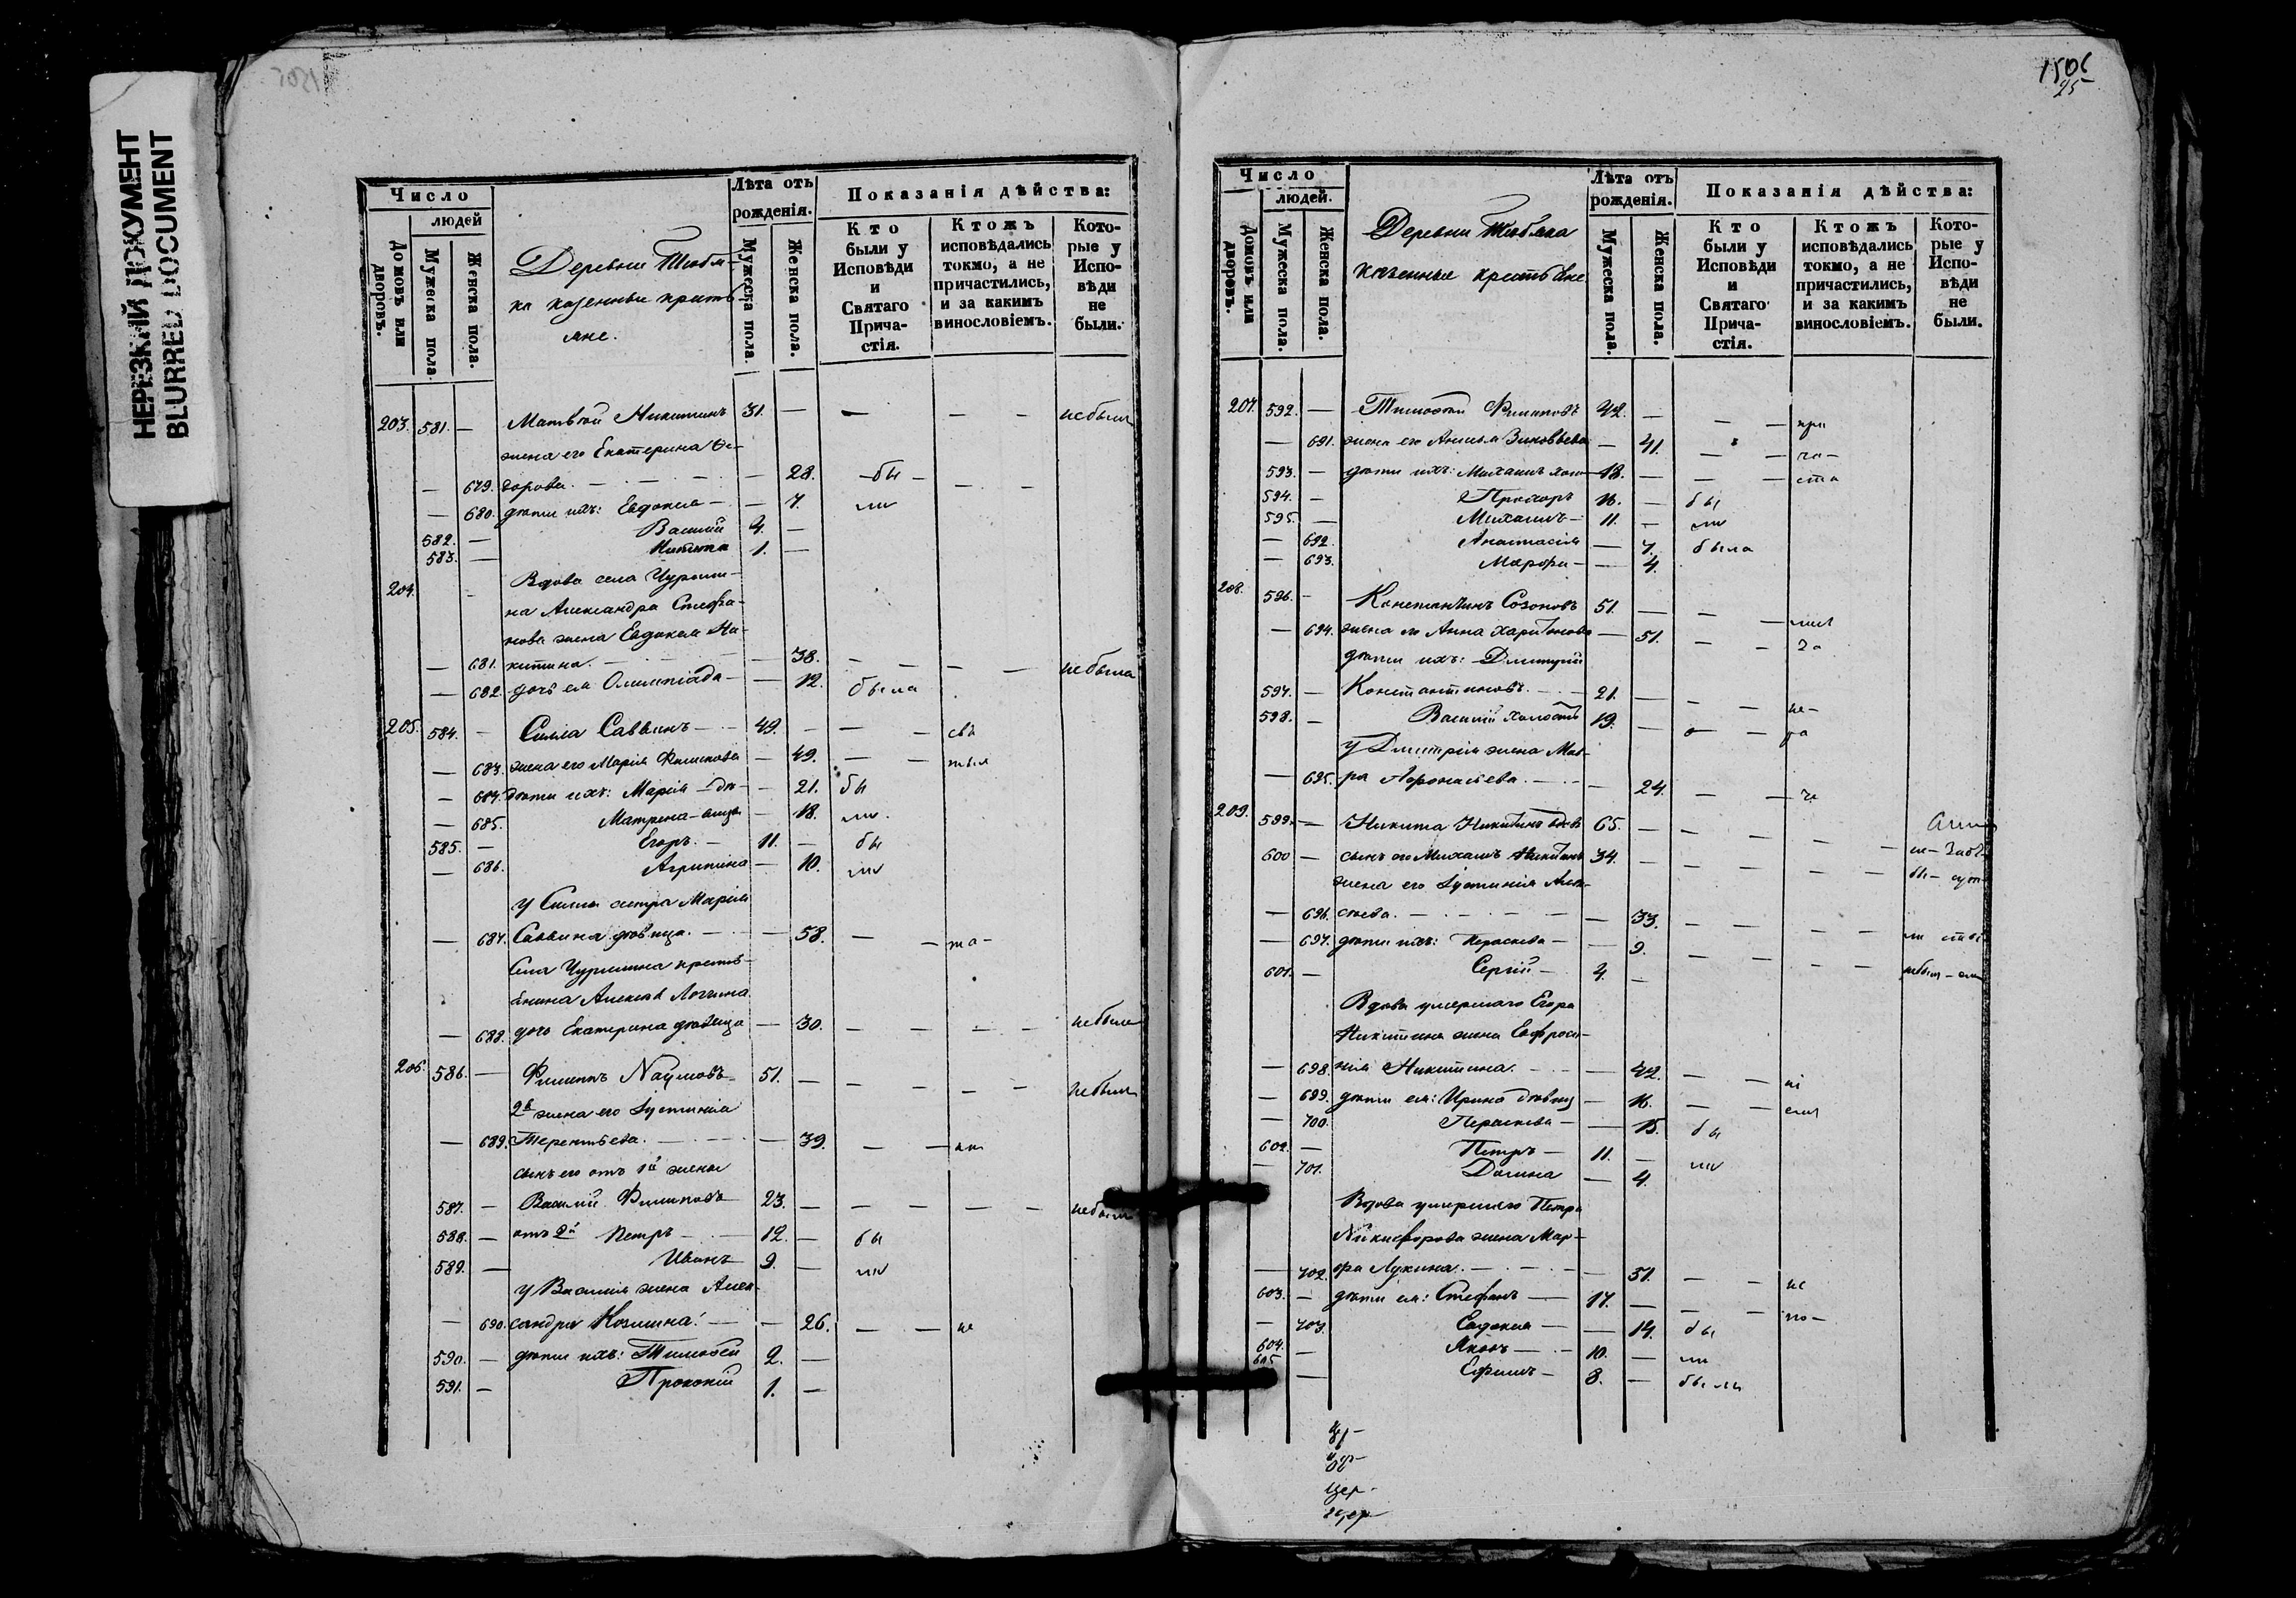 НЕРЕЗКИЙ ДОКУМЕНТ
BLURRED DOCUMENT
Число
людей
Домовъ или дворовъ.
Мужеска пола.
Женска пола.
казенные кресть-
яне.
Лѣта отъ рожденія.
Мужеска пола.
Женска пола.
Показанія дѣйства:
Кто были у Исповѣди и Святаго Прича-стія.
Ктожъ исповѣдались токмо, а не причастились, и за какимъ винословіемъ.
Кото-рые у Испо-вѣди не были.
203. 581. — Матвѣй Никитинъ 31. — — — — не былъ
жена его Екатерина Ѳе-
— 679. дорова. — 28. — бы —
— 680. дѣти ихъ: Евдокия — 7. ли
582. — Василий 4. —
583. — Никита 1. —
204. — Вдова села Чурши-
на Александра Стефа-
нова жена Евдокия Ни-
— 681. китина. — 38. — — — — не была
— 682. дочь ея Олимпіада — 12. была
205. 584. — Силла Саввинъ — 49. — —
— 683. жена его Марія Филипова — 49. — —
— 684. дѣти ихъ: Марія — дѣ- — 21. бы
— 685. Матрена — вицы — 18. ли.
585. — Егоръ. — 11. — бы
— 686. Агрипина — 10. ли
у Силлы сестра Марія
— 687. Саввина дѣвица. — 58. — —
Села Чуршина кресть-
янина Алексѣя Логгина
— 688. дочь Екатерина дѣвица — 30. — — — — не была
206. 586. — Филиппъ Наумовъ 51. — — — — не былъ
2я жена его Іустинія
— 689. Терентьева. — 39. — —
сынъ его отъ 1й жены
587. — Василий Филиповъ 23. — — — — — не былъ
588. — отъ 2й Петръ — 12. — бы
589. — Иванъ 9. — ли
у Василия жена Алек-
— 690. сандра Козмина. — — 26. — — не
590. — дѣти ихъ: Тимофей 2. —
591. — Прокопій 1. —
1506
25
Число
людей.
Домовъ или дворовъ.
Мужеска пола.
Женска пола.
казенные крестьяне
Лѣта отъ рожденія.
Мужеска пола.
Женска пола.
Показанія дѣйства:
Кто были у Исповѣди и Святаго Прича-стія.
Ктожъ исповѣдались токмо, а не причастились, и за какимъ винословіемъ.
Кото-рые у Испо-вѣди не были.
207. 592. — Тимофей Филиповъ 42. — — — при
— 691. жена его Анисья Зиновьева — 41. — — ча-
593. — дѣти ихъ: Михаилъ холо- 18. — — — ста
594. — Прохоръ 16. — бы
595. — Михаилъ — 11. — ли
— 692. Анастасія — 7. была
— 693. Марфа — — 4.
208. 596. — Константинъ Созоновъ 51. — — —
— 694. жена его Анна Харитонова — 51. — — за
дѣти ихъ: Дмитрий
597. — Константиновъ. — 21. — — — не-
598. — Василий холостъ 19. — — —
у Дмитрія жена Мав-
— 695. ра Афонасьева. — — 24. — —
209. 599. — Никита Никитинъ вдовъ 65. — — — —
600 — сынъ его Михаилъ Никитинъ 34. — — — —
жена его Іустинія Алек-
— 696. сѣева. — — 33. — — — —
— 697. дѣти ихъ: Пераскева — — 9. — — — —
601. — Сергій — 4. —
Вдова умершаго Егора
Никитина жена Евфроси-
— 698. нія Никитина. — — 42. — —
— 699. дѣти ея: Ирина дѣвица — 16. — —
— 700. Пераскева — — 15. бы
602. — Петръ — 11. — ли
— 701. Домна — 4.
Вдова умершаго Петра
Никифорова жена Мар-
— 702. фа Лукина. — — 51. — — не
603. — дѣти ея: Стефанъ — 17. — — — по-
— 703. Евдокия — — 14. бы
604. — Яковъ — 10. — ли
605 — Ефимъ — 8. — были